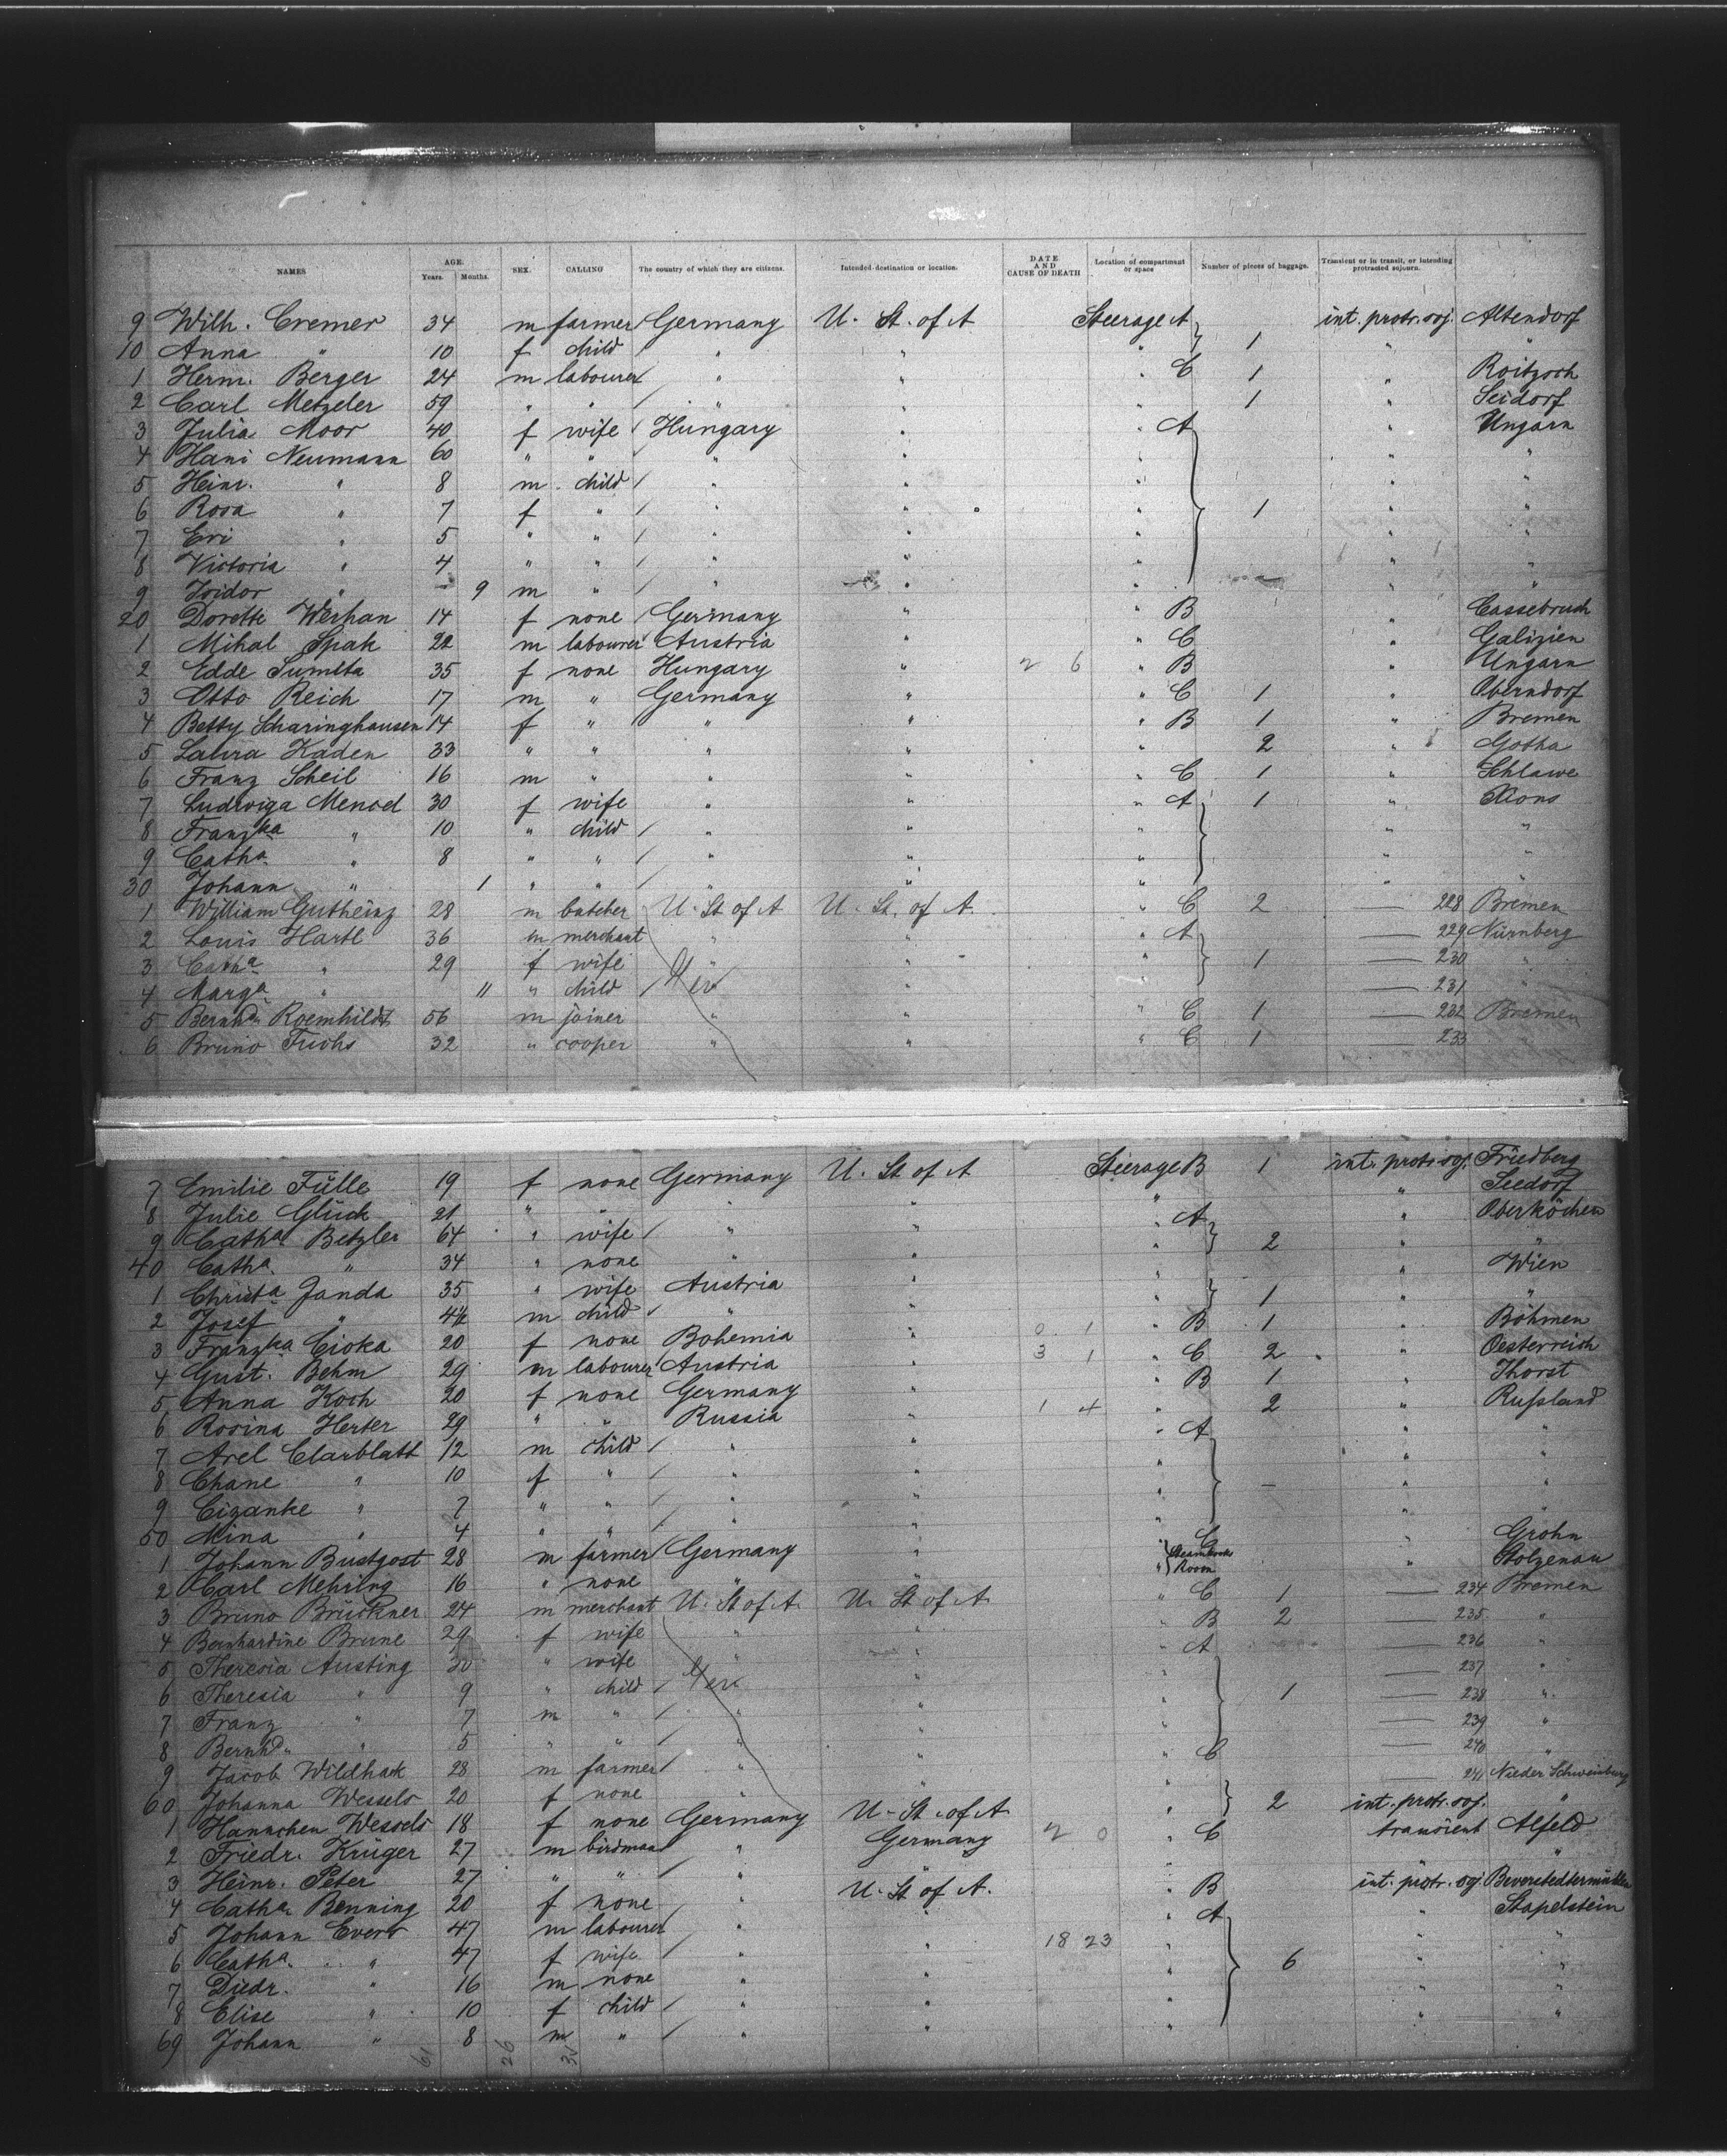 NAMES AGE. Years. Months. SEX. CALLING The country of which they are citizens. Intended destination or location. DATE AND CAUSE OF DEATH Location of compartment or space Number of pieces of baggage. Transient or in transit, or intending protracted sojourn.
9 Wilh. Cremer 34 m farmer Germany U. St. of A Steerage A int. protr. soj. Altendorf
10 Anna " 10 f child " " " 1 " "
1 Herm. Berger 24 m labourer " " " C 1 " Roitzsch
2 Carl Metzeler 59 " " " " 1 " Seidorf
3 Julia Moor 40 f wife Hungary " A " Ungarn
4 Hani Neumann 60 " " " " " " "
5 Heinr. " 8 m child " " " " "
6 Rosa " 7 f " " " " 1 " "
7 Eri " 5 " " " " " " "
8 Victoria " 4 " " " " " " "
9 Isidor " 9 m " " " " " "
20 Dorette Werhan 14 f none Germany " " B " Cassebruch
1 Mihal Spak 22 m labourer Austria " " C " Galizien
2 Edde Sumeta 35 f none Hungary " 2 6 " B " Ungarn
3 Otto Reich 17 m " Germany " " C 1 " Oberndorf
4 Betty Scharinghausen 14 f " " " " B 1 " Bremen
5 Laura Kaden 33 " " " " " 2 " Gotha
6 Franz Scheil 16 m " " " " C 1 " Schlawe
7 Ludwiga Menod 30 f wife " " " A 1 " Xions
8 Franzka " 10 " child " " " " "
9 Catha " 8 " " " " " " "
30 Johann " 1 " " " " " " "
1 William Gutheinz 28 m butcher U. St of A U. St. of A. " C 2 — 228 Bremen
2 Louis Hartl 36 m merchant " " " A — 229 Nürnberg
3 Catha " 29 f wife " " " 1 — 230 "
4 Marga " 11 " child Ger " " — 231 "
5 Bernhd. Roemhildt 56 m joiner " " " C 1 — 232 Bremen
6 Bruno Fuchs 32 " cooper " " " C 1 — 233
7 Emilie Fülle 19 f none Germany U. St of A Steerage B 1 int. protr. soj. Friedberg
8 Julie Glück 21 " " " " " " Seedorf
9 Catha Betzler 64 " wife " " " A " Oberkochen
40 Catha " 34 " none " " " 2 " "
1 Christa Janda 35 " wife Austria " " " Wien
2 Josef " 4½ m child " " " 1 " "
3 Franzka Cioka 20 f none Bohemia " 0 1 " B 1 " Böhmen
4 Gust. Behm 29 m labourer Austria " 3 1 " C 2 " Oesterreich
5 Anna Koch 20 f none Germany " " B 1 " Thorst
6 Rosina Herter 29 " " Russia " 1 4 " 2 " Rußland
7 Arel Clarblatt 12 m child " " " A " "
8 Chane " 10 f " " " " " "
9 Ciganke " 7 " " " " " — " "
50 Mina " 4 " " " " " " "
1 Johann Bustgost 28 m farmer Germany " " C " Grohn
2 Carl Mehring 16 " none " " " Room " Stolzenau
3 Bruno Brückner 24 m merchant U. St of A. U. St of A. " C 1 — 234 Bremen
4 Bernhardine Brune 29 f wife " " " B 2 — 235 "
5 Theresia Austing 30 " wife " " " A — 236 "
6 Theresia " 9 " child Ger " " — 237 "
7 Franz " 7 m " " " " 1 — 238 "
8 Bernhd. " 5 " " " " " — 239 "
9 Jacob Wildhack 28 m farmer " " " C — 240 "
60 Johanna Wessels 20 f none " " " — 241 Nieder Schweinburg
1 Hannchen Wessels 18 f none Germany U. St. of A " 2 int. protr. soj. "
2 Friedr. Krüger 27 m birdman " Germany 2 0 " C transient Alfeld
3 Heinr. Peter 27 " " " " " " "
4 Catha Benning 20 f none " U. St of A. " B int. protr. soj. Beverstedtermühlen
5 Johann Evers 47 m labourer " " " A " Stapelstein
6 Catha. " 47 f wife " " 18 23 " " "
7 Diedr. " 16 m none " " " 6 " "
8 Elise " 10 f child " " " " "
69 Johann " 8 m " " " " " "
61 26 32